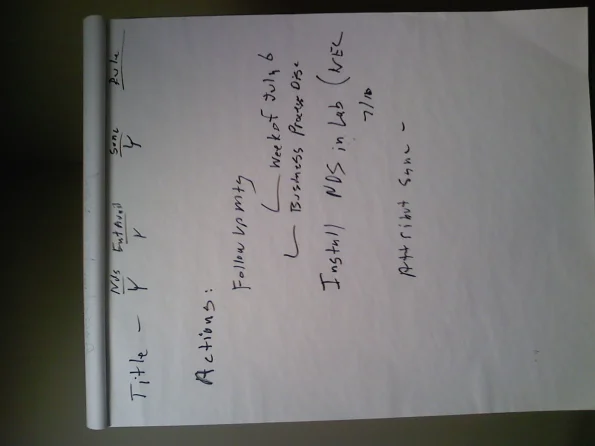 Nds Ent Avail Sync Rule
Title - Y Y Y
Actions:
Follow up mtg
Week of July 6
Business Process Disc
Install NDS in Lab (NEC
7/10
Attribut Sync -